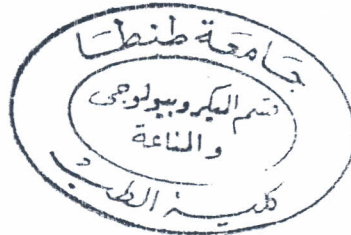 جامعة طنطا
قسم الميكروبيولوجى
و المناعة
كلية الطب